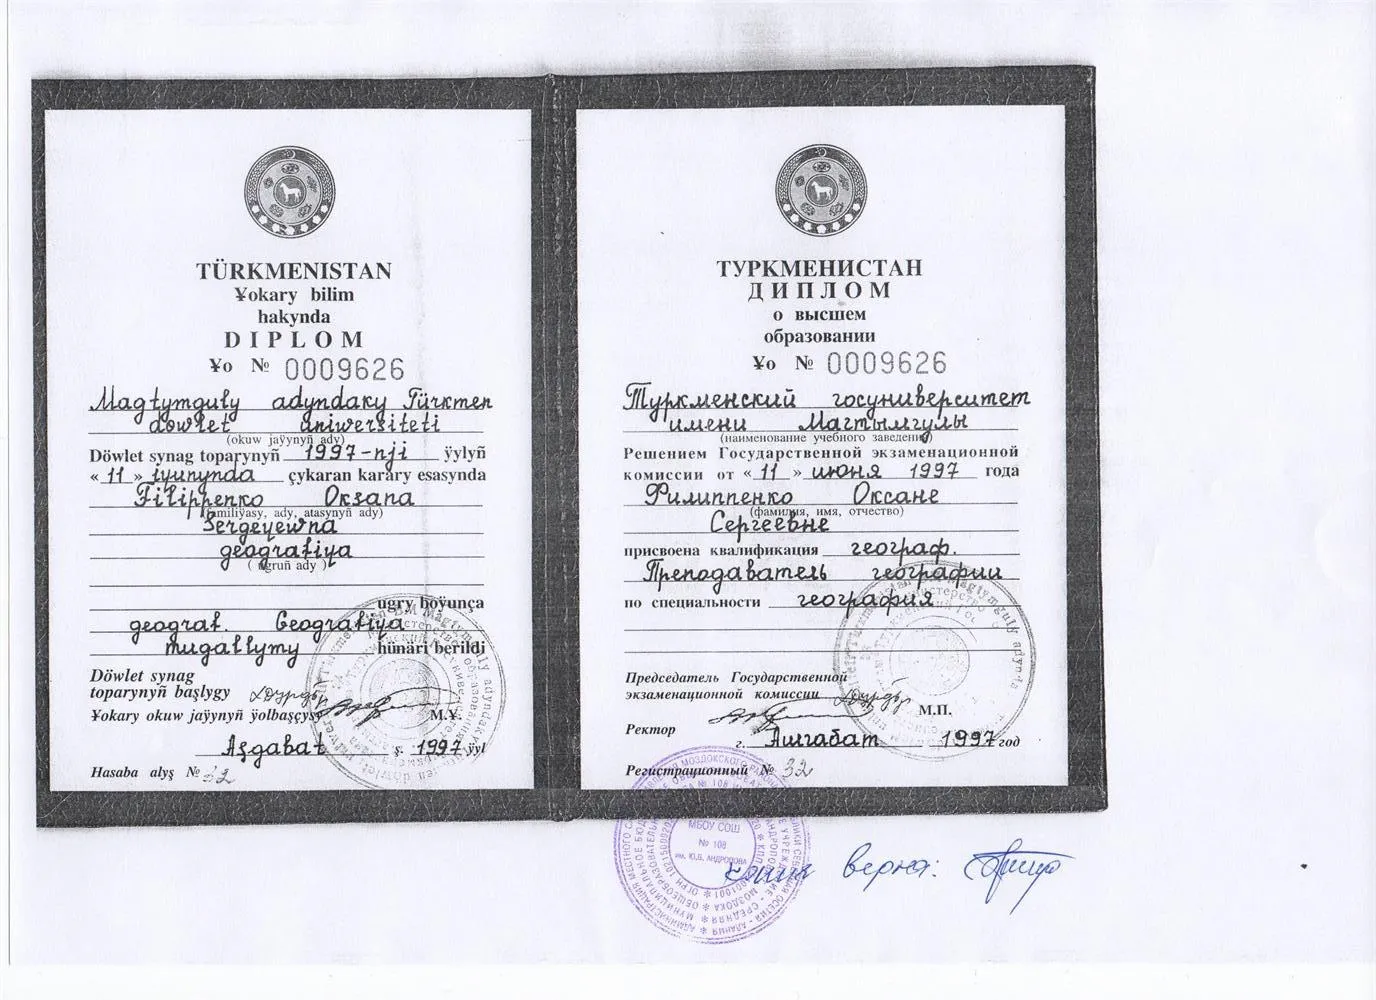 TÜRKMENISTAN
Ɏokary bilim
hakynda
DIPLOM
Ɏo № 0009626
Magtymguly adyndaky Türkmen
döwlet uniwersiteti
(okuw jaɏynyñ ady)
Döwlet synag toparynyñ 1997-nji ɏylyñ
« 11 » iɏunynda çykaran karary esasynda
Filippenko Oksana
(familiɏasy, ady, atasynyñ ady)
Sergeyewna
geografiya
( ugruñ ady )
ugry boɏunça
geograf. Geografiya
mugallymy hünäri berildi
Döwlet synag
toparynyñ başlygy
Ɏokary okuw jaɏynyñ ɏolbaşçysy
M.Ɏ.
Aşgabat ş. 1997 ɏyl
Hasaba alyş № 32
ТУРКМЕНИСТАН
ДИПЛОМ
о высшем
образовании
Ɏo № 0009626
Туркменский госуниверситет
имени Магтымгулы
(наименование учебного заведения)
Решением Государственной экзаменационной
комиссии от « 11 » июня 1997 года
Филиппенко Оксане
(фамилия, имя, отчество)
Сергеевне
присвоена квалификация географ.
Преподаватель географии
по специальности география
Председатель Государственной
экзаменационной комиссии
М.П.
Ректор
г. Ашгабат 1997 год
Регистрационный № 32
МБОУ СОШ
№ 108
им. Ю.В. АНДРОПОВА
копия верна: